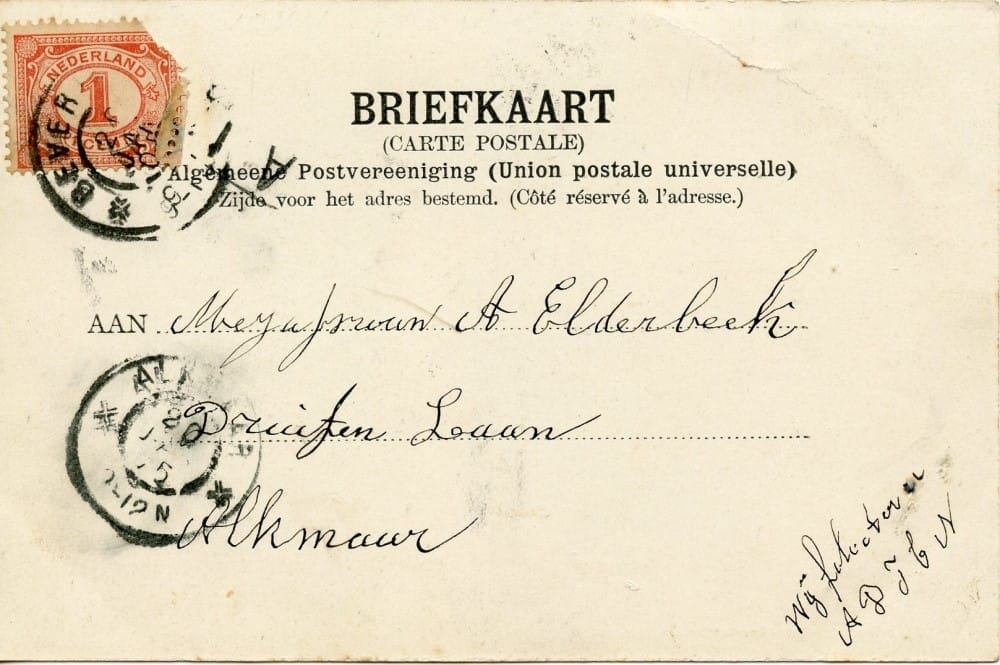 NEDERLAND
1
CENT
BEVER
BRIEFKAART
(CARTE POSTALE)
Algemeene Postvereeniging (Union postale universelle)
Zijde voor het adres bestemd. (Côté réservé à l'adresse.)
AAN Mejufrouw A Elderbeek
Druifen Laan
Alkmaar
Wij
A D J C N